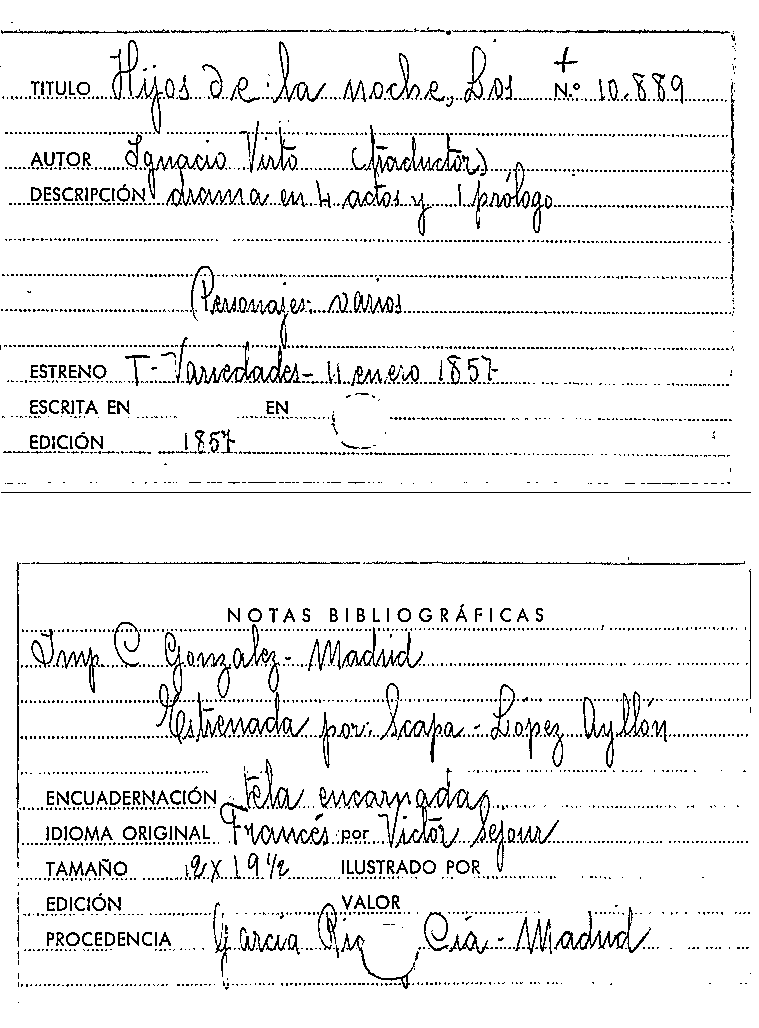 TITULO Hijos de la noche, Los + N.º 10.889
AUTOR Ignacio Virto (traductor)
DESCRIPCIÓN drama en 4 actos y 1 prólogo
Personajes: varios
ESTRENO T- Variedades- 11 enero 1857
ESCRITA EN EN
EDICIÓN 1857
NOTAS BIBLIOGRÁFICAS
Imp C Gonzalez- Madrid
Estrenada por: Scapa - López Ayllón
ENCUADERNACIÓN tela encarnada
IDIOMA ORIGINAL Francés por Victor Sejour
TAMAÑO 12 X 19 1/2 ILUSTRADO POR
EDICIÓN VALOR
PROCEDENCIA García Ric Cía - Madrid